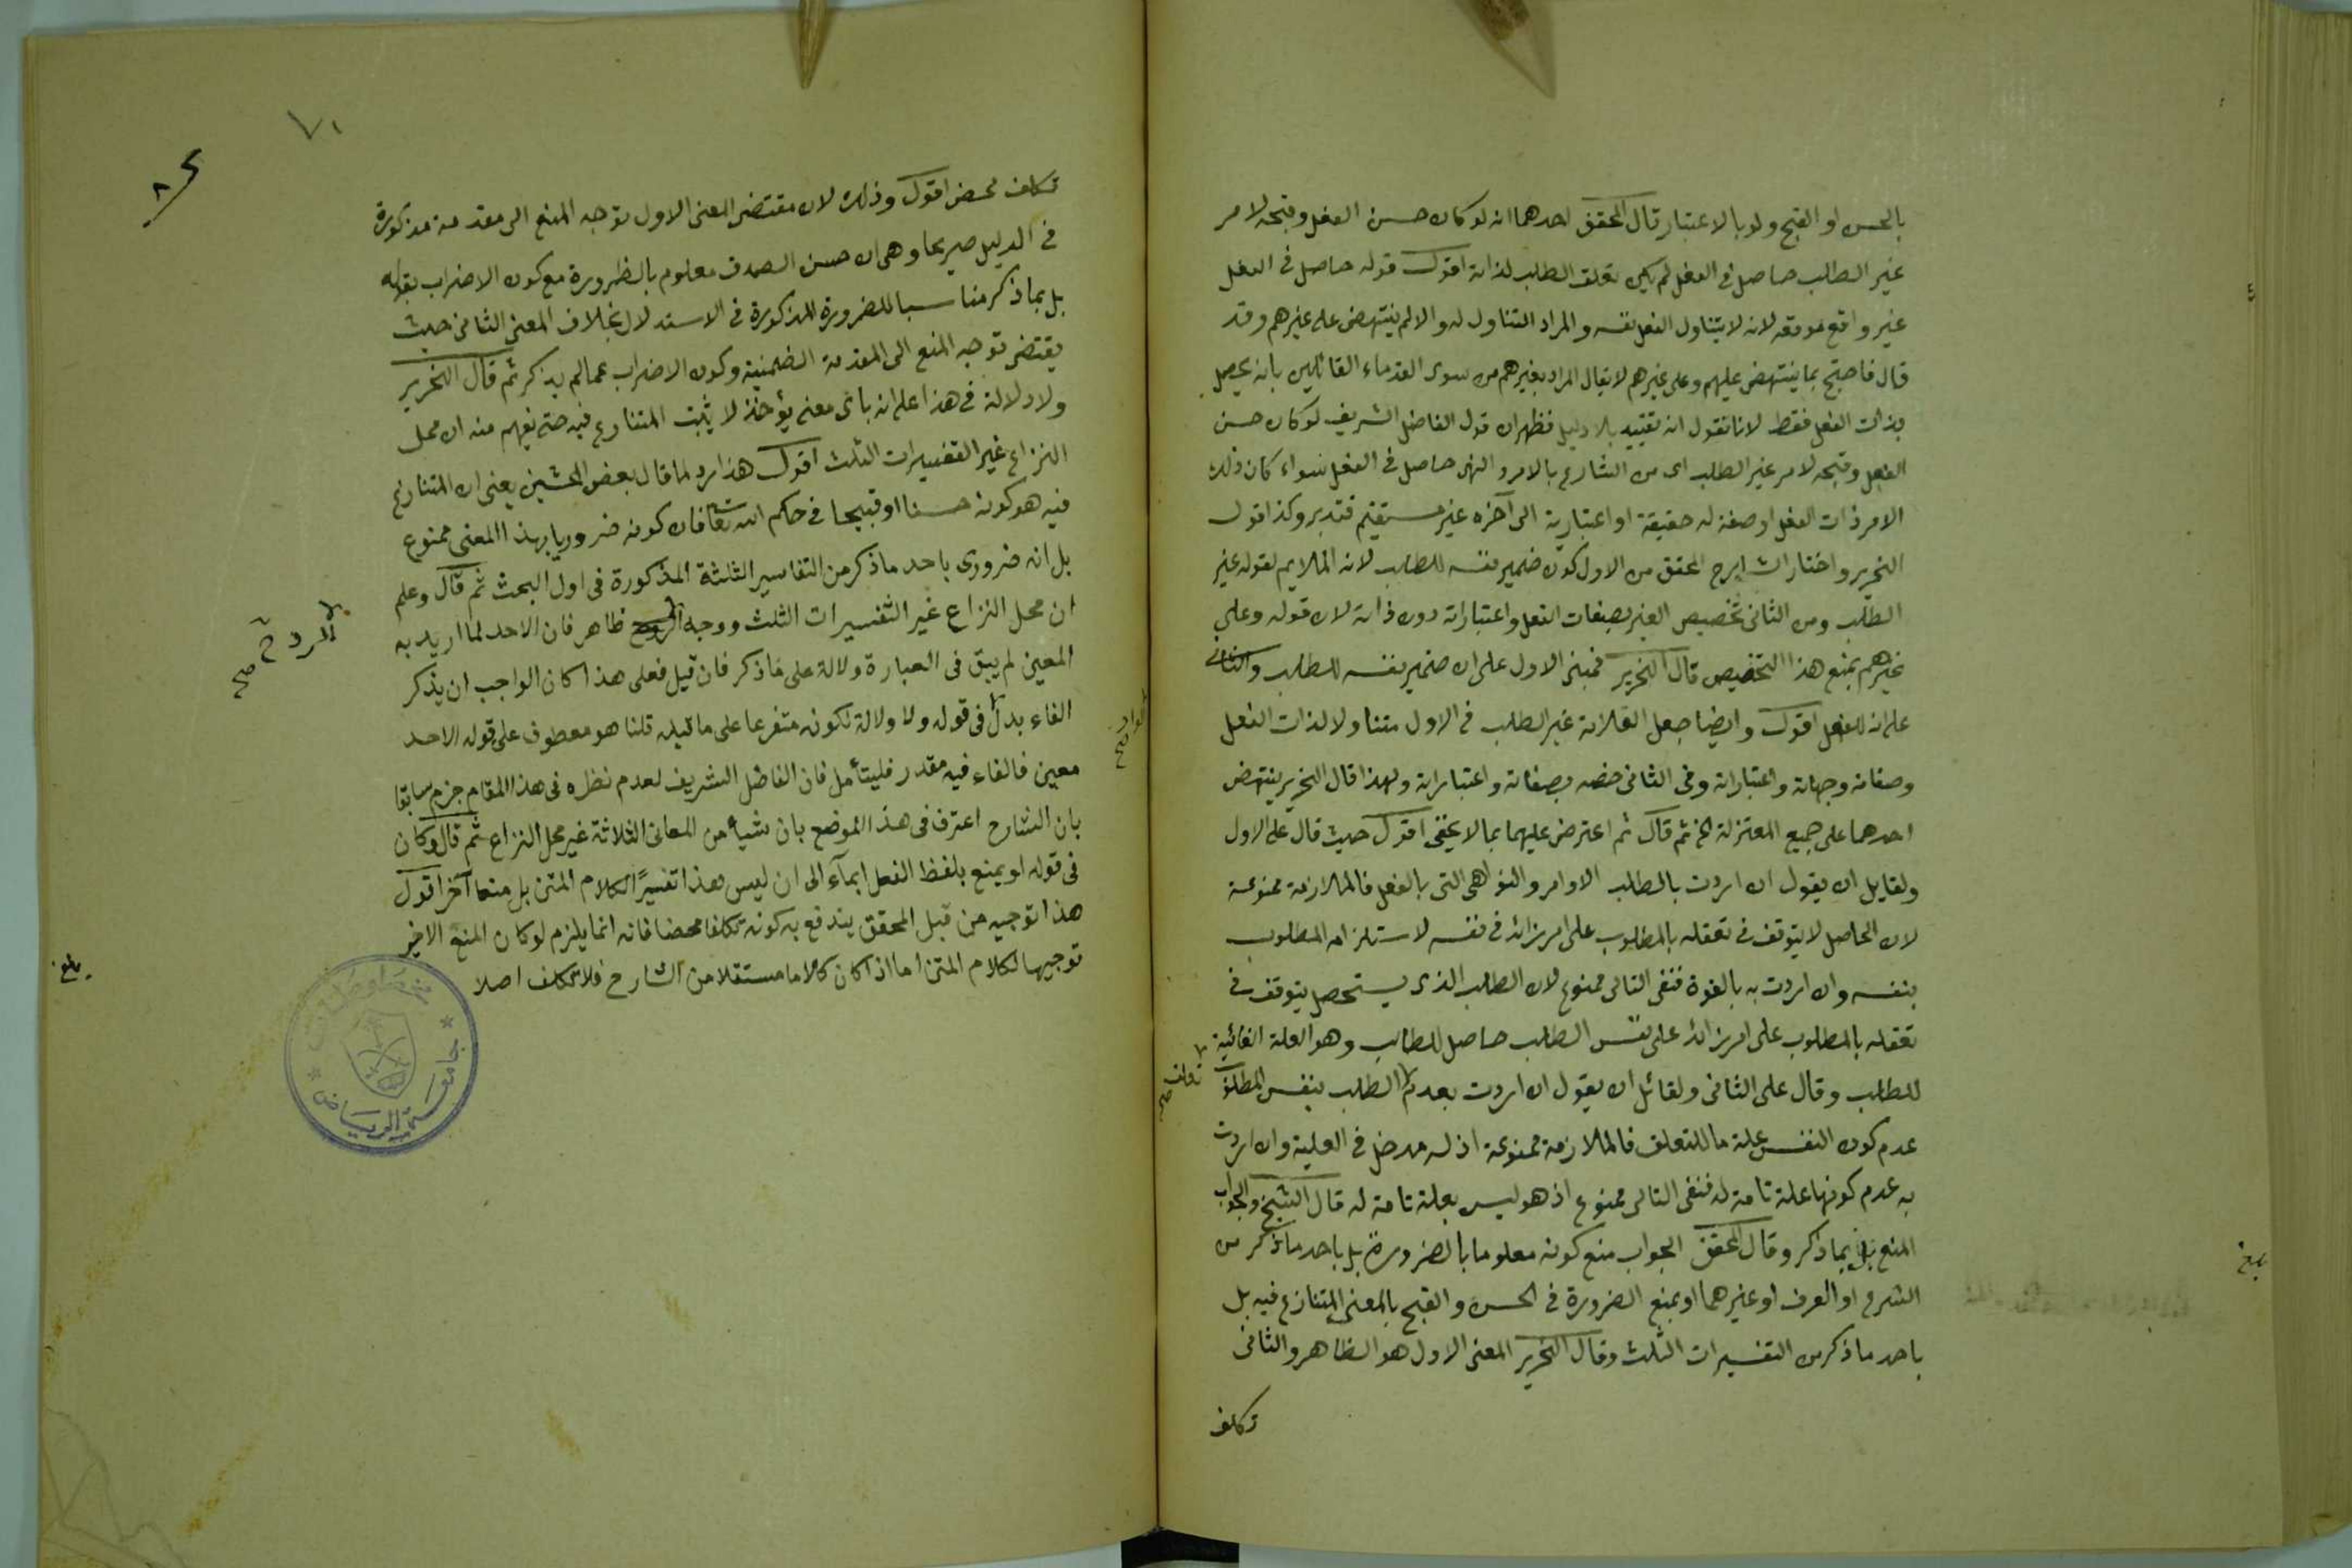 بالحسن او القبح ولو بالاعتبار قال المحقق احدهما انه لو كان حسن الفعل وقبحه لامر
غير الطلب حاصل في الفعل لم يكن تعلق الطلب لذاته اقول قوله حاصل في الفعل
غير واقع موقعه لانه لا يتناول الفعل نفسه والمراد التناول له والا لم ينتهض على غيرهم وقد
قال فاحتج بما ينتهض عليهم وعلى غيرهم لا يقال المراد بغيرهم من سوى القدماء القائلين بانه يحصل
بذات الفعل فقط لانا نقول انه تقييد بلا دليل فظهر ان قول الفاضل الشريف لو كان حسن
الفعل وقبحه لامر غير الطلب اى من الشارع بالامر والنهى حاصل في الفعل سواء كان ذلك
الامر ذات الفعل او صفة له حقيقة او اعتبارية الى آخره غير مستقيم فتدبر وكذا قول
النحرير واختار الشارح المحقق من الاول كون ضمير نفسه للطلب لانه الملايم لقوله غير
الطلب ومن الثانى تخصيص الغير بصفات الفعل واعتباراته دون ذاته لان قوله وعلى
غيرهم يمنع هذا التخصيص قال النحرير فمبنى الاول على ان ضمير نفسه للطلب والثانى
على انه للفعل اقول وايضا جعل العلامة غير الطلب في الاول متناولا لذات الفعل
وصفاته وجهاته واعتباراته وفي الثانى خصه بصفاته واعتباراته ولهذا قال النحرير ينتهض
احدهما على جميع المعتزلة الخ ثم قال ثم اعترض عليهما بما لا يخفى اقول حيث قال على الاول
ولقايل ان يقول ان اردت بالطلب الاوامر والنواهى التى بالفعل فالملازمة ممنوعة
لان الحاصل لا يتوقف في تعقله بالمطلوب على امر زائد في نفسه لاستلزامه المطلوب
بنفسه وان اردت به بالقوة فنفى التالى ممنوع لان الطلب الذى يستحصل يتوقف في
تعقله بالمطلوب على امر زائد على نفس الطلب حاصل للطالب وهو العلة الغائية
للطلب وقال على الثانى ولقائل ان يقول ان اردت بعدم الطلب بنفس المطلوب
تعلق صح
عدم كون النفس علة ما للتعلق فالملازمة ممنوعة اذ له مدخل في العلية وان اردت
به عدم كونها علة تامة له فنفى التالى ممنوع اذ هو ليس بعلة تامة له قال الشيخ والجواب
المنع بل بما ذكر وقال المحقق الجواب منع كونه معلوما بالضرورة بل باحد ما ذكر من
الشرع او العرف او غيرهما او بمنع الضرورة في الحسن والقبح بالمعنى المتنازع فيه بل
باحد ما ذكر من التفسيرات الثلث وقال النحرير المعنى الاول هو الظاهر والثانى
تكلف
بلغ
٧١
تكلف محض اقول وذلك لان مقتضى المعنى الاول توجه المنع الى مقدمة مذكورة
في الدليل صريحا وهى ان حسن الصدق معلوم بالضرورة مع كون الاضراب بقوله
بل بما ذكر مناسبا للضرورة المذكورة في الاستدلال بخلاف المعنى الثانى حيث
يقتضى توجه المنع الى المقدمة الضمنية وكون الاضراب عما لم يذكر ثم قال النحرير
ولا دلالة في هذا اعلم انه باى معنى يؤخذ لا يثبت المتنازع فيه حتى يفهم منه ان محل
النزاع غير التفسيرات الثلث اقول هذا رد لما قال بعض المحشين يعنى ان المتنازع
فيه هو كونه حسنا او قبيحا في حكم الله تعالى فان كونه ضروريا بهذا المعنى ممنوع
بل انه ضرورى باحد ما ذكر من التفاسير الثلثة المذكورة في اول البحث ثم قال وعلم
ان محل النزاع غير التفسيرات الثلث ووجه ظاهر فان الاحد لما اريد به
المعين لم يبق في العبارة دلالة على ما ذكر فان قيل فعلى هذا كان الواجب ان يذكر
الفاء بدل في قوله ولا دلالة لكونه متفرعا على ما قيله قلنا هو معطوف على قوله الاحد
معين فالفاء فيه مقدر فليتأمل فان الفاضل الشريف لعدم نظره في هذا المقام جزم سابقا
بان الشارح اعترف في هذا الموضع بان شيأ من المعانى الثلاثة غير محل النزاع ثم قال وكان
في قوله او يمنع بلفظ الفعل ايماء الى ان ليس هذا تفسيرًا لكلام المتن بل منعا آخر اقول
هذا توجيه من قبل المحقق يندفع به كونه تكلفا محضا فانه انما يلزم لو كان المنع الاخير
توجيها لكلام المتن اما اذا كان كلاما مستقلا من الشارح فلا تكلف اصلا
الرد ح صح
بلغ
جامعة الرياض